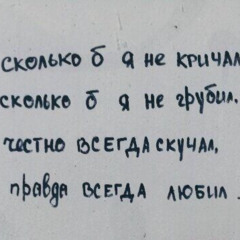 сколько б я не кричал
сколько б я не грубил.
честно ВСЕГДА скучал,
правда ВСЕГДА любил.